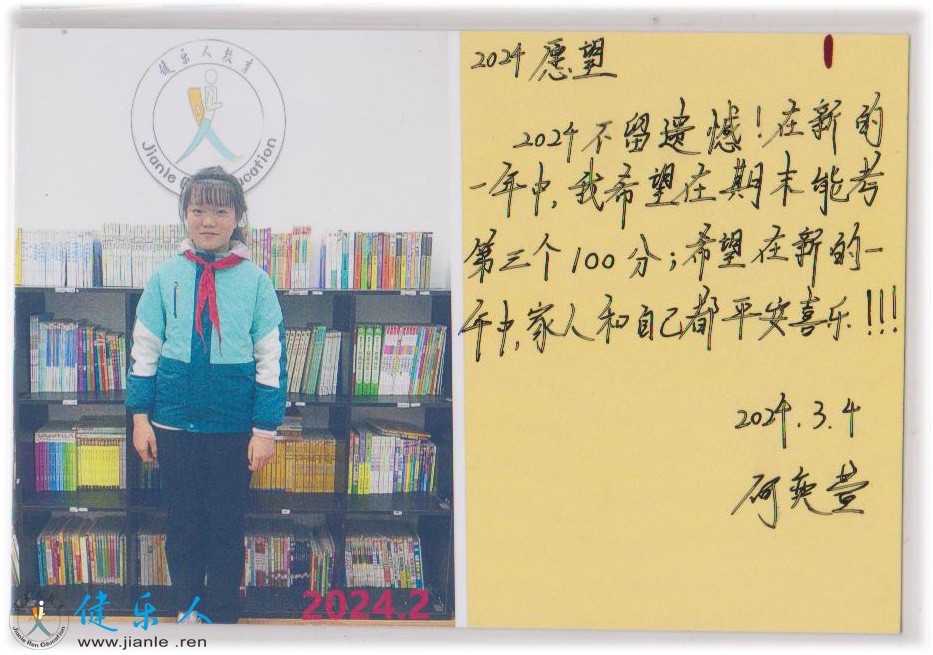 健乐人教育
Jianle Ren Education
2024 愿望
2024 不留遗憾！在新的
一年中，我希望在期末能考
第三个100分；希望在新的一
年中，家人和自己都平安喜乐！！！
2024.3.4
奕萱
2024.2
健乐人
www.jianle .ren
Jianle Ren Education